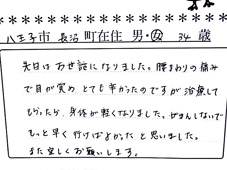 八王子市 長沼 町在住 男・女 34 歳
先日はお世話になりました。腰まわりの痛み
で目が覚め とても辛かったのですが治療して
もらったら、身体が軽くなりました。がまんしないで
もっと早く行けばよかった と思いました。
また宜しくお願いします。